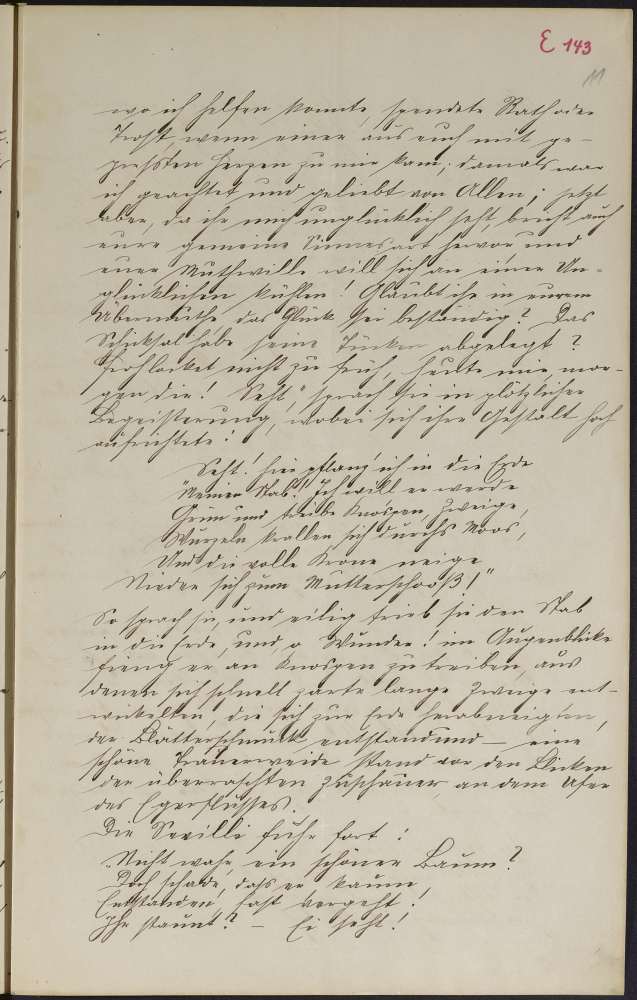 E 143
11
wo ich helfen konnte, spendete Rath oder
Trost, wenn einer aus euch mit ge-
preßten Herzen zu mir kam; damals war
ich geachtet und geliebt von Allen; jetzt
aber, da ihr mich unglücklich seht, bricht auch
eure gemeine Sinnesart hervor und
euer Muthwille will sich an einer Un-
glücklichen kühlen! Glaubt ihr in eurem
Übermuthe das Glück sei beständig? Das
Schicksal habe seine Tücken abgelegt?
Frohlocket nicht zu früh, heute mir, mor-
gen dir! Seht," sprach sie in plötzlicher
Begeisterung, wobei sich ihre Gestalt hoch
aufrichtete:
Seht! hier pflanz' ich in die Erde
"Meinen Stab! Ich will er werde
Grün und treibe Knospen, Zweige,
Wurzeln krallen sich durchs Moos,
Und die volle Krone neige
Nieder sich zum Mutterschooß!"
So sprach sie, und eilig trieb sie den Stab
in die Erde, und, o Wunder! im Augenblicke
fieng er an Knospen zu treiben, aus
denen sich schnell zarte lange Zweige ent-
wickelten, die sich zur Erde herabneigten,
der Blätterschmuck entstand und — eine
schöne Trauerweide stand vor den Blicken
der überraschten Zuschauer an dem Ufer
des Egerflusses.
Die Sevilli fuhr fort:
"Nicht wahr, ein schöner Baum?
Doch schade, daß er kaum
Entstanden, fast vergeht!
Ihr staunt? — Ei seht!